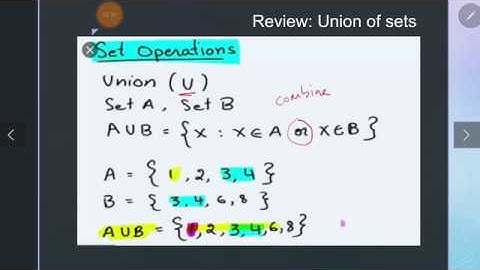 Review: Union of sets
Set Operations
Union (U)
Set A, Set B
combine
A∪B = {x : x∈A or x∈B}
A = {1, 2, 3, 4}
B = {3, 4, 6, 8}
A∪B = {1, 2, 3, 4, 6, 8}